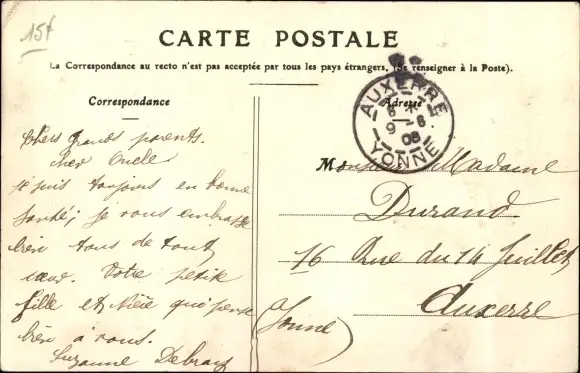 15f
CARTE POSTALE
La Correspondance au recto n'est pas acceptée par tous les pays étrangers. (Se renseigner à la Poste).
Correspondance
Chers Grands parents.
Cher Oncle
je suis toujours en bonne
santé; je vous embrasse
bien tous de tout
cœur. Votre petite
fille et Nièce qui pense
bien à vous.
Suzanne
Adresse
AUXERRE
9 - 6
08
YONNE
Monsieur Madame
Durand
16 Rue du 14 Juillet
Auxerre
(Yonne)